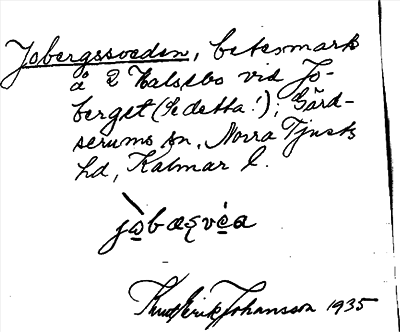 Jobergssveden, betesmark
å 2 Kalsebo vid Jo-
berget (Se detta!); Gärd-
serums sn, Norra Tjusts
hd, Kalmar l.
Knut Erik Johansson 1935